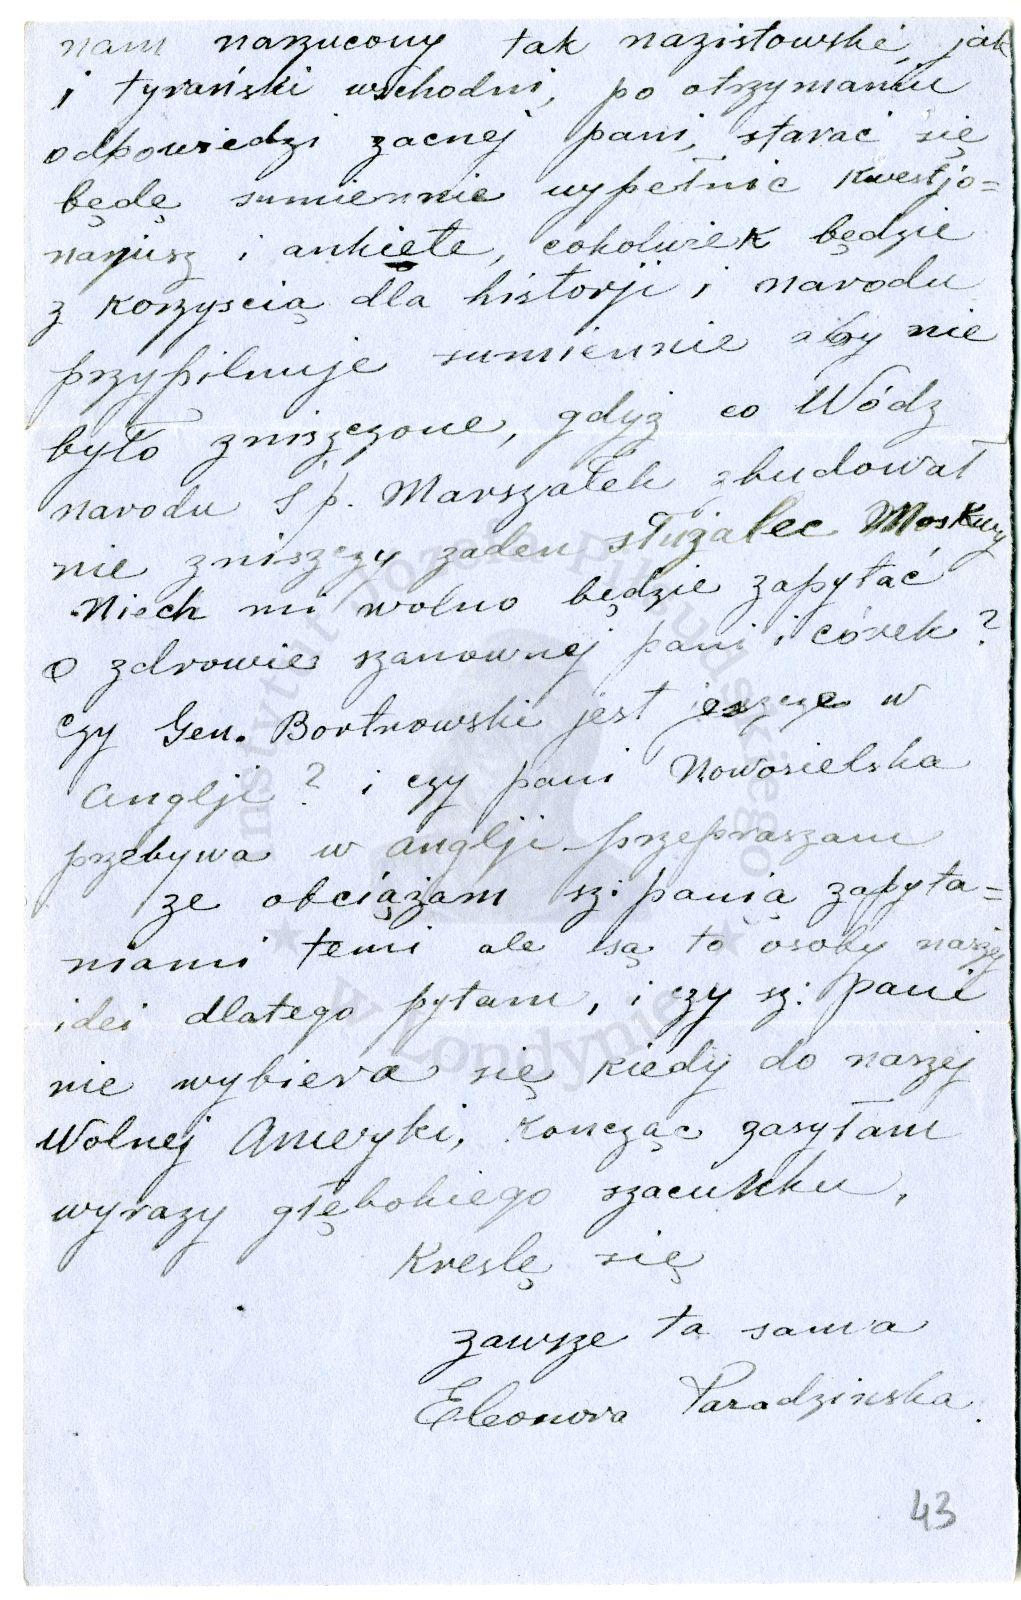 nam narzucony tak nazistowski, jak
i tyrański wschodni, po otrzymaniu
odpowiedzi zacnej pani, starać się
będę sumiennie wypełnić kwestjo=
narjusz i ankiete, cokolwiek będzie
z korzyscią dla historji i narodu
przypilnuje sumiennie aby nie
było zniszczone, gdyż co Wódz
narodu Ś p. Marszałek zbudował
nie zniszczy zaden służalec Moskwy
Niech mi wolno będzie zapytać
o zdrowie szanownej pani i córek?
Czy Gen. Bortnowski jest jeszcze w
Anglji? i czy pani Nowosielska
przebywa w anglji przepraszam
ze obciążam sz: panią zapyta=
niami temi ale są to osoby naszej
idei dlatego pytam, i czy sz: pani
nie wybiera się kiedy do naszej
Wolnej Ameryki, Kończąc zasyłam
wyrazy głębokiego szacunku,
Kreslę się
zawsze ta sama
Eleonora Paradzinska
43
Instytut Józefa Piłsudskiego
w Londynie